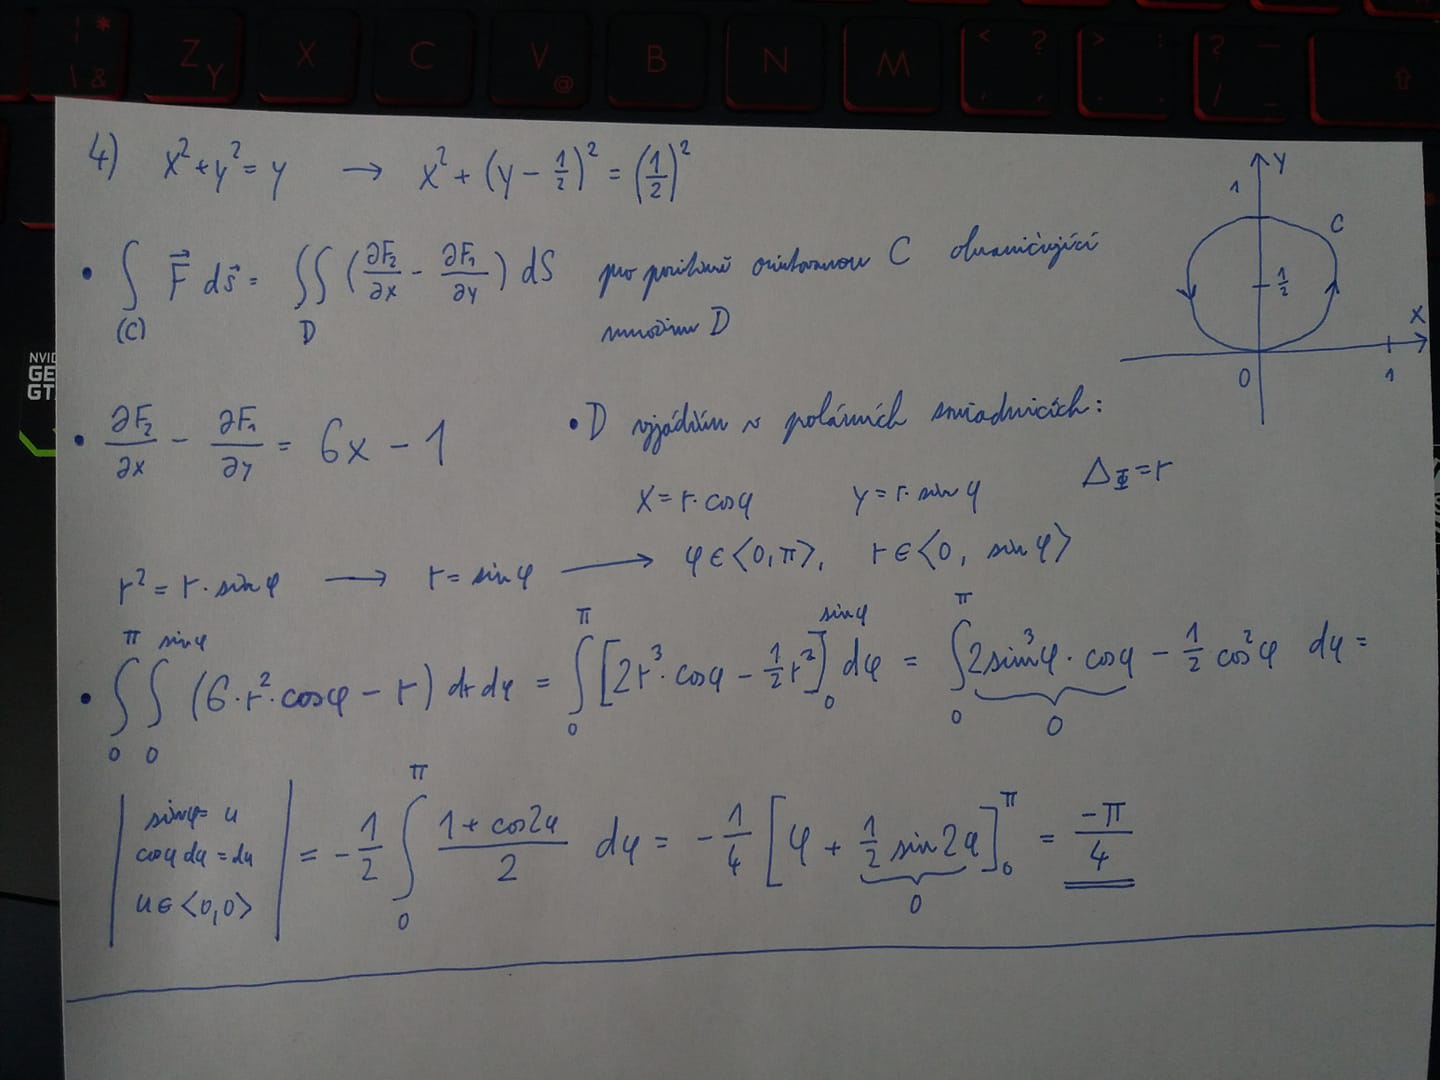 Z Y X C V @ B N M < ? > : ? _
4) x² + y² = y → x² + (y - 1/2)² = (1/2)²
y 1 C 1/2 x 0 1
• ∫(C) F⃗ ds⃗ = ∬D (∂F₂/∂x - ∂F₁/∂y) dS pro pozitivně orientovanou C ohraničující
množinu D
NVID
GE
GT
• ∂F₂/∂x - ∂F₁/∂y = 6x - 1
• D vyjádřím v polárních souřadnicích:
x = r·cosφ y = r·sinφ Δ_Φ = r
r² = r·sinφ → r = sinφ → φ∈<0,π>, r∈<0, sinφ>
• ∫₀^π ∫₀^sinφ (6·r²·cosφ - r) dr dφ = ∫₀^π [2r³·cosφ - 1/2 r²]₀^sinφ dφ = ∫₀^π 2sin³φ·cosφ - 1/2 cos²φ dφ =
0
sinφ = u
cosφ dφ = du
u∈<0,0>
= -1/2 ∫₀^π (1 + cos2φ)/2 dφ = -1/4 [φ + 1/2 sin2φ]₀^π = -π/4
0